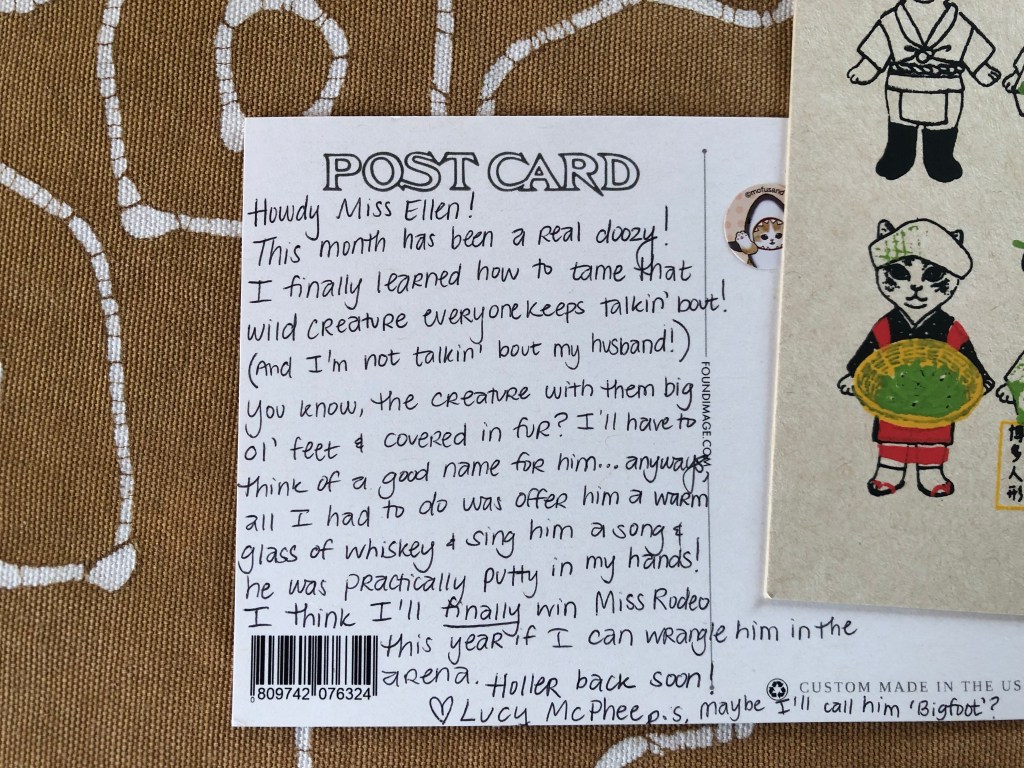 POST CARD
Howdy Miss Ellen!
This month has been a real doozy!
I finally learned how to tame that
wild creature everyone keeps talkin' bout!
(And I'm not talkin' bout my husband!)
You know, the creature with them big
ol' feet & covered in fur? I'll have to
think of a good name for him... anyways,
all I had to do was offer him a warm
glass of whiskey & sing him a song &
he was practically putty in my hands!
I think I'll finally win Miss Rodeo
this year if I can wrangle him in the
arena. Holler back soon!
♡ Lucy McPhee p.s. maybe I'll call him 'Bigfoot'?
809742 076324
FOUNDIMAGE.COM
CUSTOM MADE IN THE US
©mofusand
博多人形